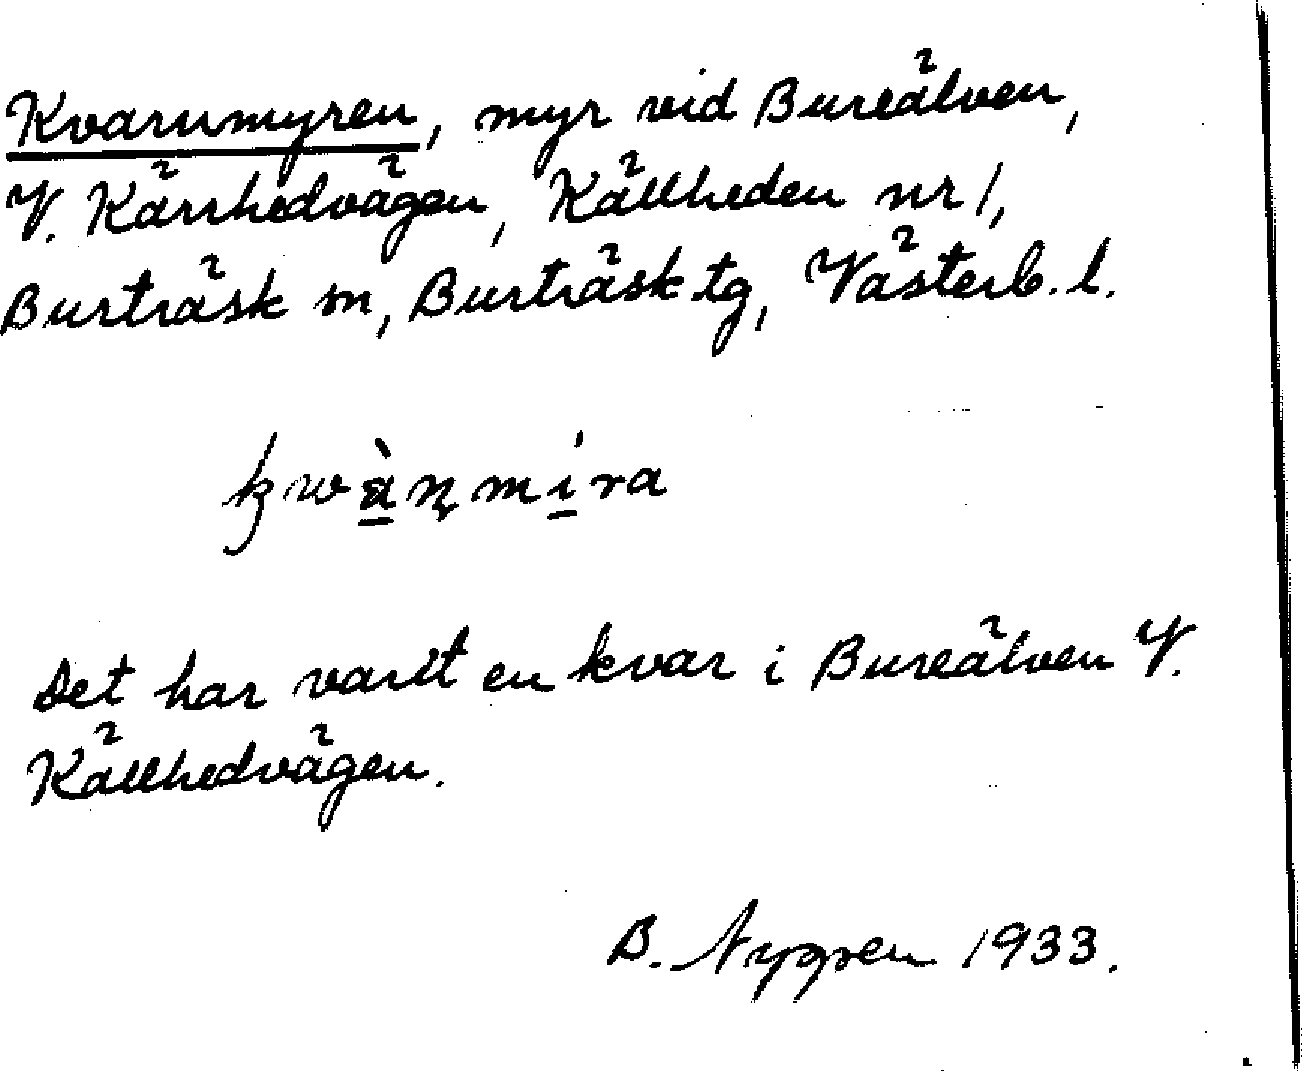 Kvarnmyren, myr vid Bureälven,
V. Kärrhedvägen, Källheden nr 1,
Burträsk sn, Burträsk tg, Västerb. l.
kwànmira
Det har varit en kvar i Bureälven V.
Källhedvägen.
B. Nygren 1933.